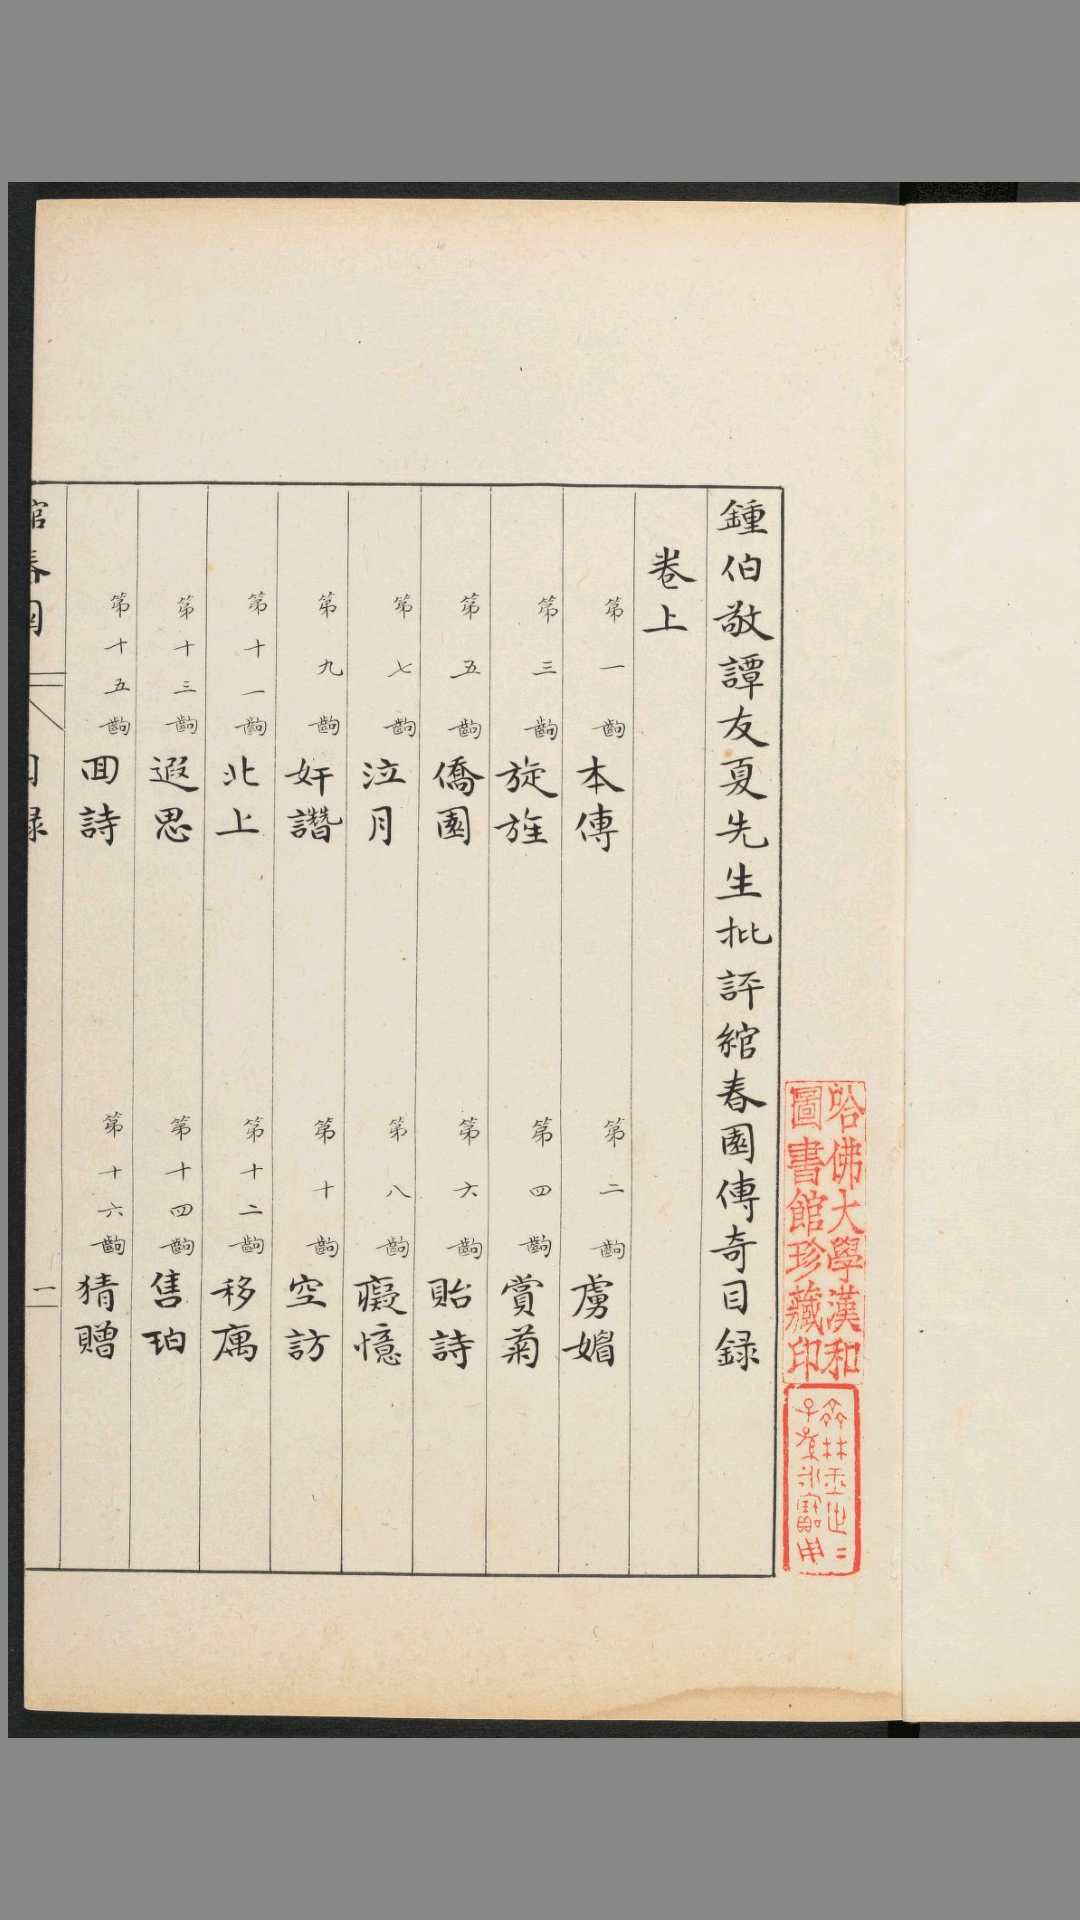 哈佛大學漢和
圖書館珍藏印
齊林玉世二
子孫永寶用
鍾伯敬譚友夏先生批評綰春園傳奇目録
卷上
第一齣 本傳 第二齣 虜媚
第三齣 旋旌 第四齣 賞菊
第五齣 僑園 第六齣 貽詩
第七齣 泣月 第八齣 癡憶
第九齣 奸譛 第十齣 空訪
第十一齣 北上 第十二齣 移庽
第十三齣 遐思 第十四齣 售珀
第十五齣 囬詩 第十六齣 猜贈
綰春園 目録 一